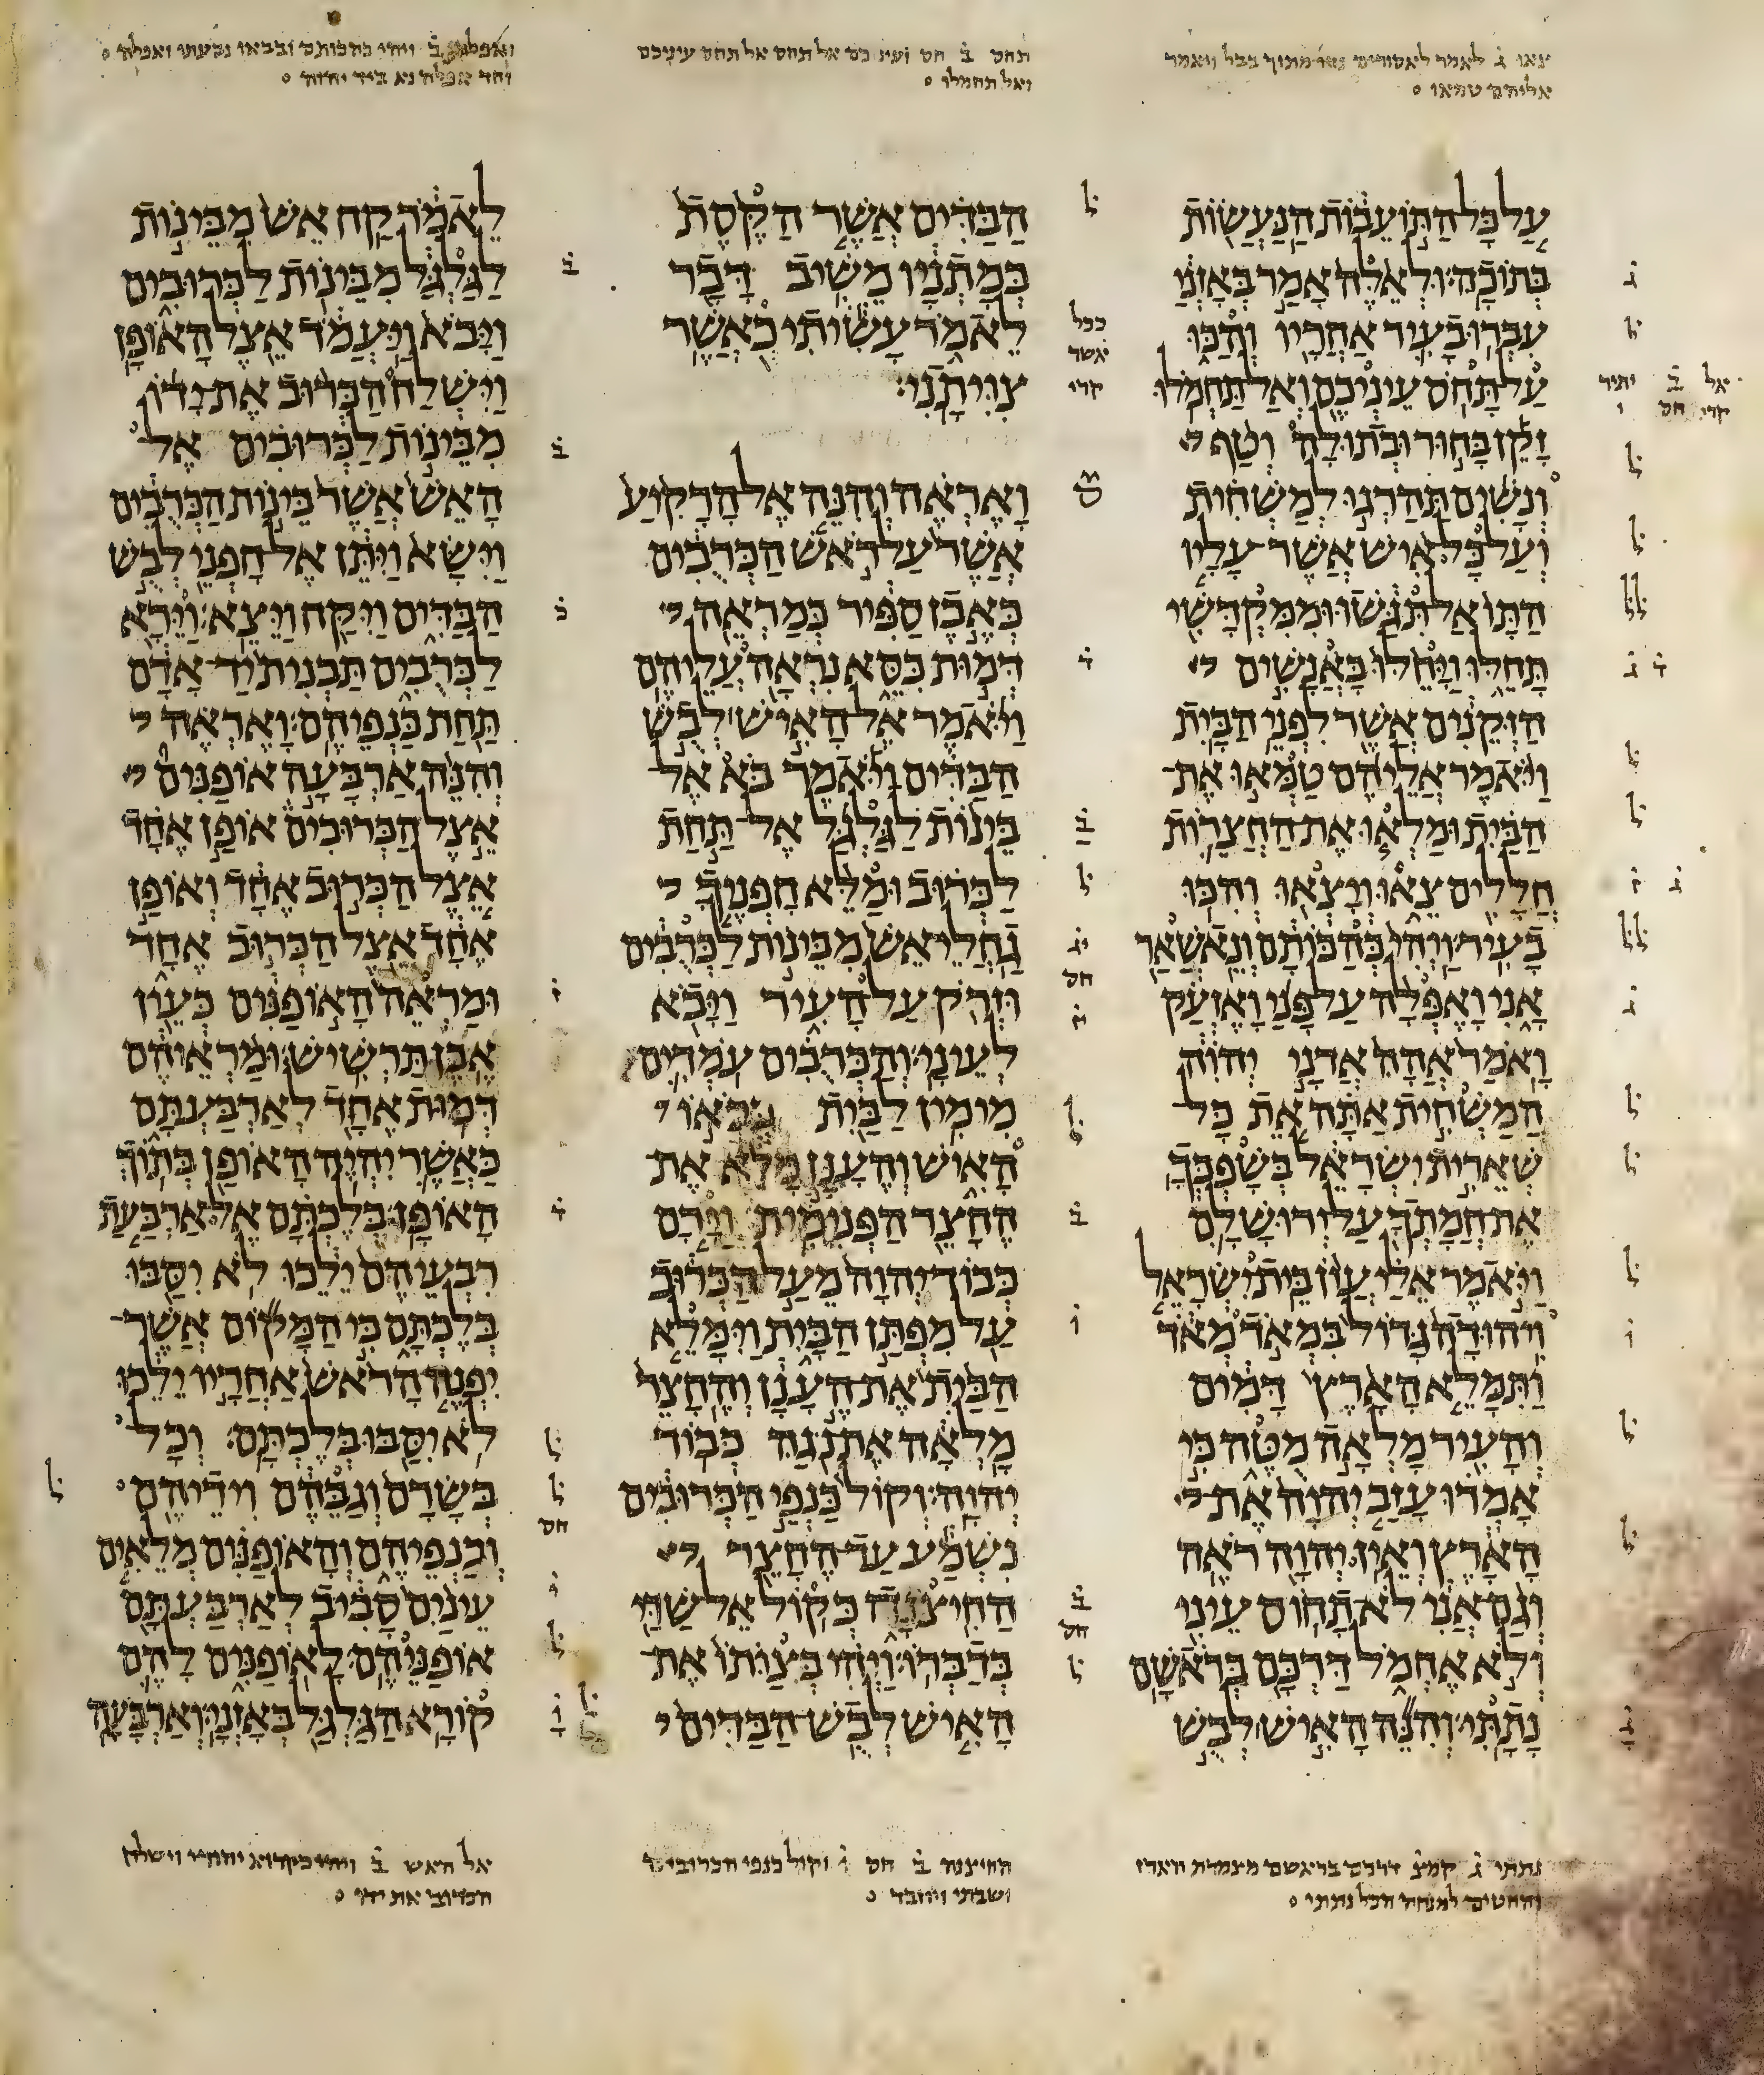 יצאו ג̇ לאמר לאסורים צאו מתוך בבל ויאמר
אליהם טמאו
תחס ב̇ חס ועינכם אל תחס אל תחס עיניכם
ואל תחמלו
ב̇ ויהי כהכותם ובבאו נבעתי ואפלה
וחד אפלה נא ביד יהוה
על כל התועבות הנעשות
בתוכה׃ ולאלה אמר באזני
עברו בעיר אחריו והכו
על תחס עיניכם ואל תחמלו׃
זקן בחור ובתולה וטף
ונשים תהרגו למשחית
ועל כל איש אשר עליו
התו אל תגשו וממקדשי
תחלו ויחלו באנשים
הזקנים אשר לפני הבית׃
ויאמר אליהם טמאו את־
הבית ומלאו את החצרות
חללים צאו ויצאו והכו
בעיר׃ ויהי כהכותם ונאשאר
אני ואפלה על פני ואזעק
ואמר אהה אדני יהוה
המשחית אתה את כל
שארית ישראל בשפכך
את חמתך על ירושלם׃
ויאמר אלי עון בית ישראל
ויהודה גדול במאד מאד
ותמלא הארץ דמים
והעיר מלאה מטה כי
אמרו עזב יהוה את
הארץ ואין יהוה ראה׃
וגם אני לא תחוס עיני
ולא אחמל דרכם בראשם
נתתי׃ והנה האיש לבש
הבדים אשר הקסת
במתניו משיב דבר
לאמר עשיתי כאשר
צויתני׃
ואראה והנה אל הרקיע
אשר על ראש הכרבים
כאבן ספיר כמראה
דמות כסא נראה עליהם׃
ויאמר אל האיש לבש
הבדים ויאמר בא אל
בינות לגלגל אל־תחת
לכרוב ומלא חפניך
גחלי אש מבינות לכרבים
וזרק על העיר ויבא
לעיני׃ והכרבים עמדים
מימין לבית בבאו
האיש והענן מלא את־
החצר הפנימית׃ וירם
כבוד יהוה מעל הכרוב
על מפתן הבית וימלא
הבית את הענן והחצר
מלאה את נגה כבוד
יהוה׃ וקול כנפי הכרובים
נשמע עד החצר
החיצנה כקול אל שדי
בדברו׃ ויהי בצותו את־
האיש לבש הבדים
לאמר קח אש מבינות
לגלגל מבינות לכרובים
ויבא ויעמד אצל האופן׃
וישלח הכרוב את ידו
מבינות לכרובים אל
האש אשר בינות הכרבים
וישא ויתן אל חפני לבש
הבדים ויקח ויצא׃ וירא
לכרבים תבנית יד־אדם
תחת כנפיהם׃ ואראה
והנה ארבעה אופנים
אצל הכרובים אופן אחד
אצל הכרוב אחד ואופן
אחד אצל הכרוב אחד
ומראה האופנים כעין
אבן תרשיש׃ ומראיהם
דמות אחד לארבעתם
כאשר יהיה האופן בתוך
האופן׃ בלכתם אל ארבעת
רבעיהם ילכו לא יסבו
בלכתם כי המקום אשר־
יפנה הראש אחריו ילכו
לא יסבו בלכתם׃ וכל
בשרם וגבהם וידיהם
וכנפיהם והאופנים מלאים
עינים סביב לארבעתם
אופניהם׃ לאופנים להם
קורא הגלגל באזני׃ וארבעה
נתתי ג̇ קמצ דרכם בראשם מצמדת הארז
והחטים למנחה הכל נתתי
החיצנה ב̇ חס ו̇ וקול כנפי הכרובים
אל האש ב̇ ויהי כקרוא יהודי וישלח
הכרוב את ידו